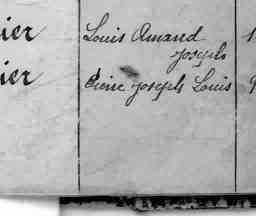 ier Louis Amand
Joseph
ier Pierre Joseph Louis